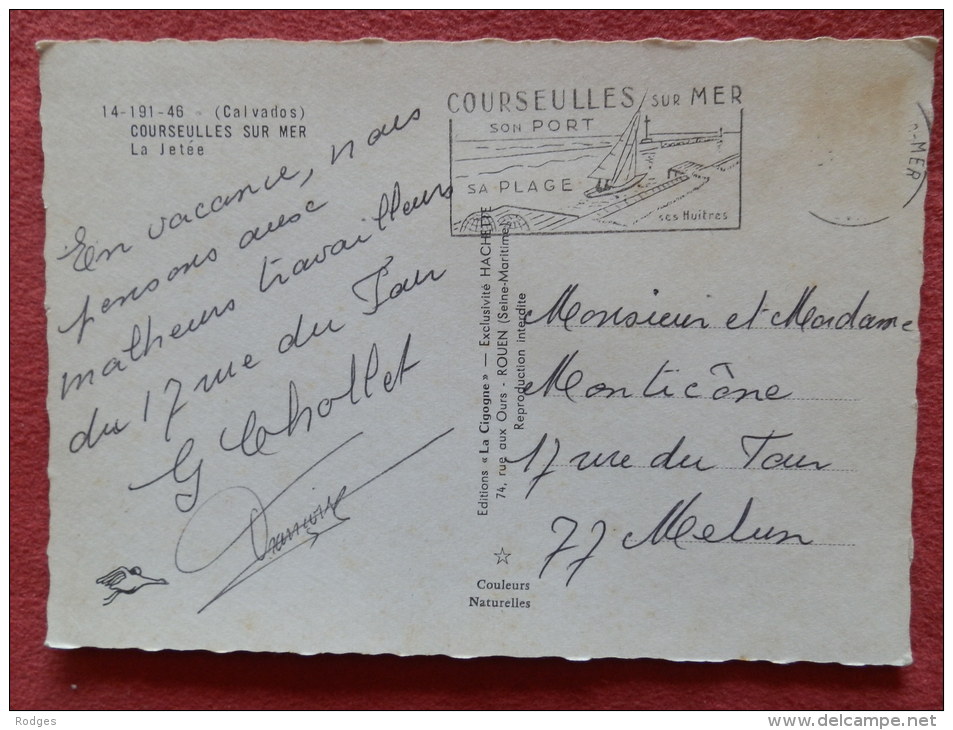 14-191-46 - (Calvados)
COURSEULLES SUR MER
La Jetée
En vacance, nous
pensons aux
malheurs travailleurs
du 17 rue du Four
G Chollet
COURSEULLES SUR MER
SON PORT
SA PLAGE
ses Huitres
-MER
Editions « La Cigogne » — Exclusivité HACHETTE
74, rue aux Ours - ROUEN (Seine-Maritime)
Reproduction interdite
Couleurs
Naturelles
Monsieur et Madame
Monticône
17 rue du Four
77 Melun
Rodges
www.delcampe.net